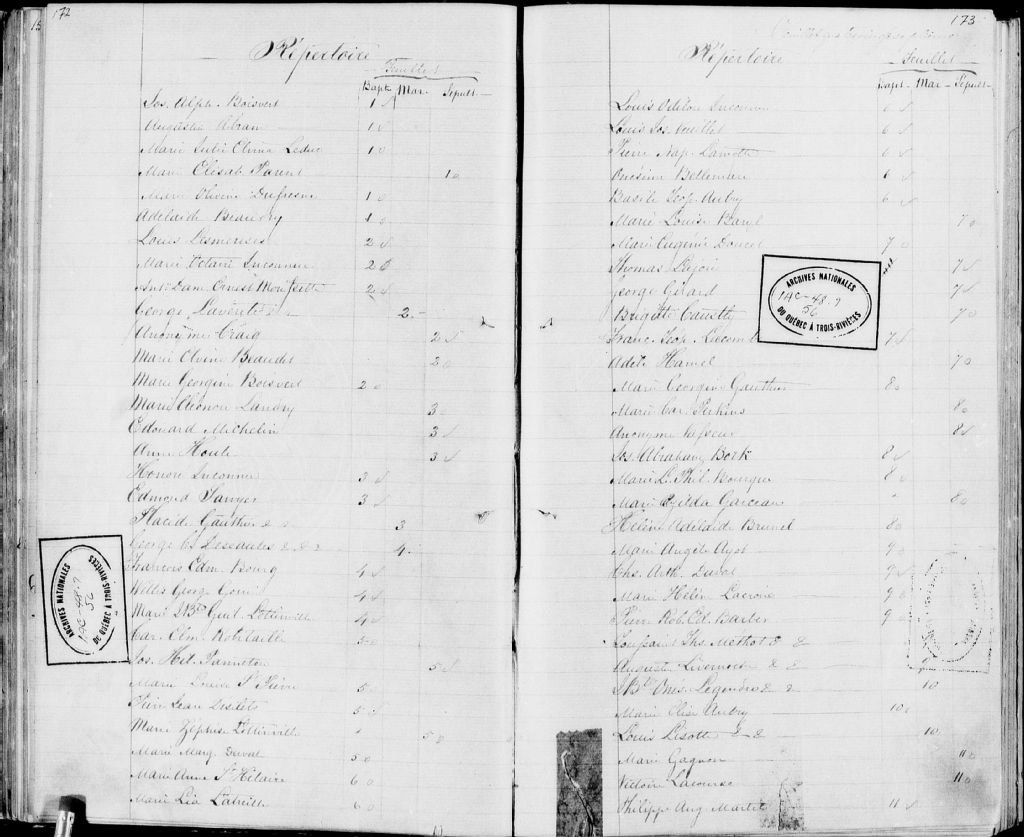 172
Répertoire
Feuillet
Bapt. Mar. Sépult.
Jos. Alph. Boisvert 1
Augustin Abran 1
Marie Julie Olivia Leduc 1
Marie Elisab. Parent 1
Marie Olivine Dufresne 1
Adelaide Beaudry 1
Louis Desmeuses 2
Marie Octavie Inconnue 2
Ant. Dam. Ernest Morissette 2
George 2
Anonyme Craig 2
Marie Olvine Beaudet 2
Marie Georgine Boisvert 2
Marie Eleonore Landry 3
Edouard Michelin 3
Anne Houle 3
Honoré Inconnu 3
Edmond Sawyer 3
Placide Gauthier & & 3
George Et. Deseaules & & & 4
François Edm. Bourg 4
Willis George 4
Marie J. Bte Guil. Lotterville 4
Car. Elm. Robitaille 5
Jos. Hil. Panneton 5
Marie St Pierre 5
Pierre Jean Desilets 5
Marie Zéphise Lotterville 5
Marie Marg. Duval 5
Marie Anne St Hilaire 6
Marie Lia Labrille 6
ARCHIVES NATIONALES
1AC-48.7
56
DU QUÉBEC À TROIS-RIVIÈRES
173
Répertoire
Feuillet
Bapt. Mar. Sépult.
Louis Odilon Inconnu 6
Louis Jos. Ouellet 6
Pierre Nap. Lamothe 6
Onésime Bellemare 6
Basile Jos. Aubry 6
Marie Louise Baril 7
Marie Eugénie Doucet 7
Thomas Lajoie 7
George Gélard 7
Brigitte 7
Franc. Jos. Lacombe 7
Adèle Hamel 7
Marie Georgine Gauthier 8
Marie Car. Perkins 8
Anonyme Vasseur 8
Jos. Abraham Bork 8
Marie L. Phil. Bourque 8
Marie Exilda Garceau 8
Hélène Adélaide Brunel 8
Marie Angèle Ayot 9
Chs. Arth. Duval 9
Marie Hélène Lacroix 9
Pierre Rob. Ed. Barber 9
Toussaint Ths. Methot & & 9
Auguste Livernoche & &
J. Bte Onés. Legendre & & 10
Marie Elise Aubry 10
Louis Lisotte & & 10
Marie Gagnon 11
Victoire Lacourse 11
Philippe Aug. Martel 11
ARCHIVES NATIONALES
1AC-48.7
56
DU QUÉBEC À TROIS-RIVIÈRES